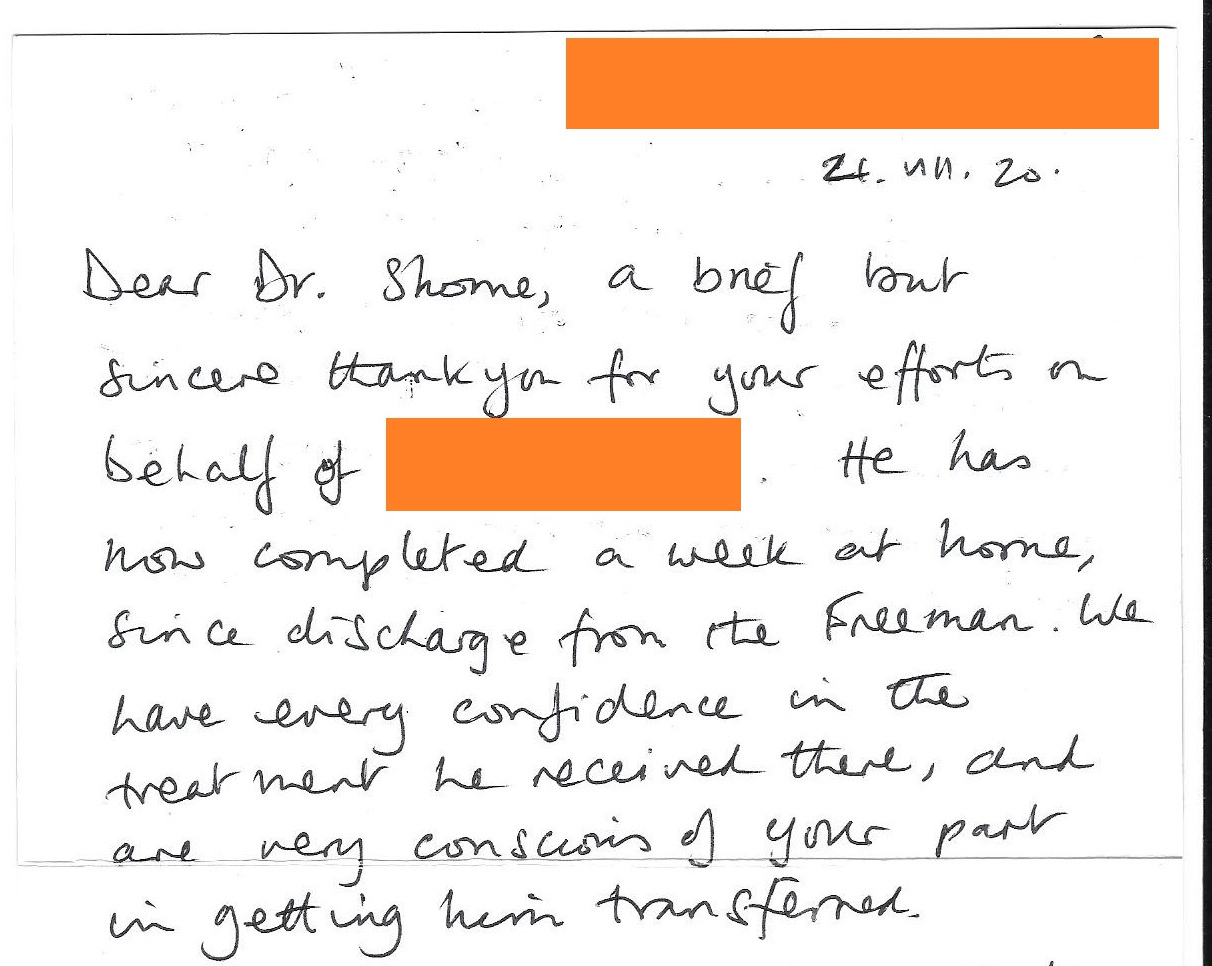 VIII. 20.
Dear Dr. Shome, a brief but
sincere thankyou for your efforts on
behalf of . He has
now completed a week at home,
since discharge from the Freeman. We
have every confidence in the
treatment he received there, and
are very conscious of your part
in getting him transferred.